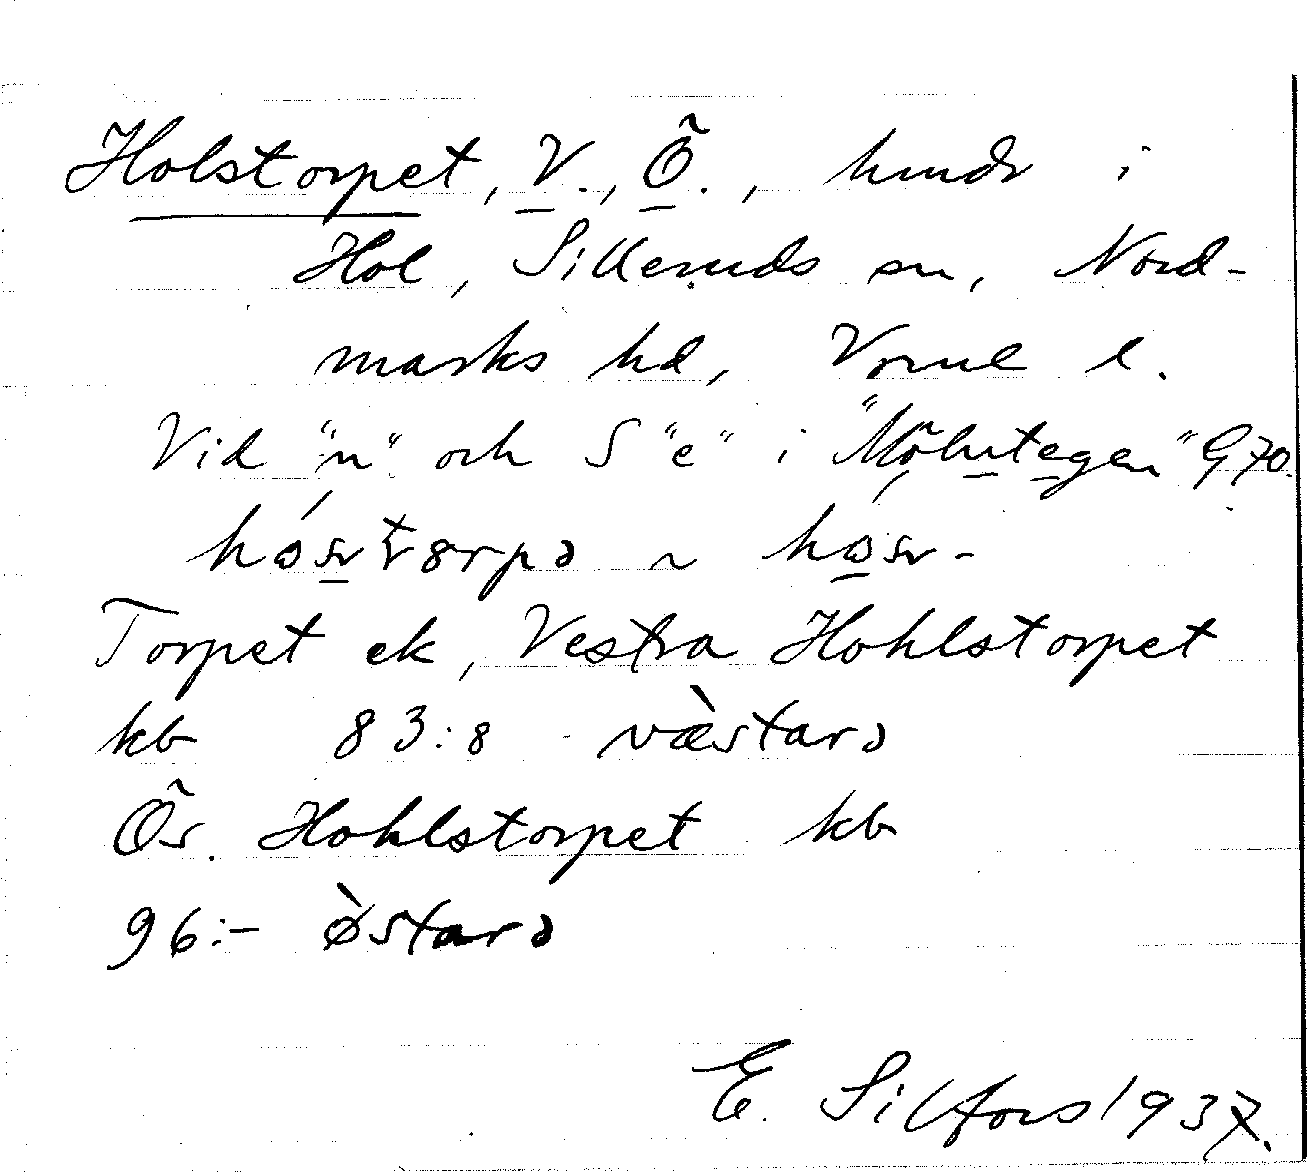 Holstorpet, V., Ö., hmdr i
Hol, Silleruds sn, Nord-
marks hd, Vrml l.
Vid "n" och S "e" i "Mölntegen" G 70.
Torpet ek, Vestra Hohlstorpet
kb 83:8 væ̀starə
Ös. Hohlstorpet kb
96:- ø̀starə
E. Silfors 1937.